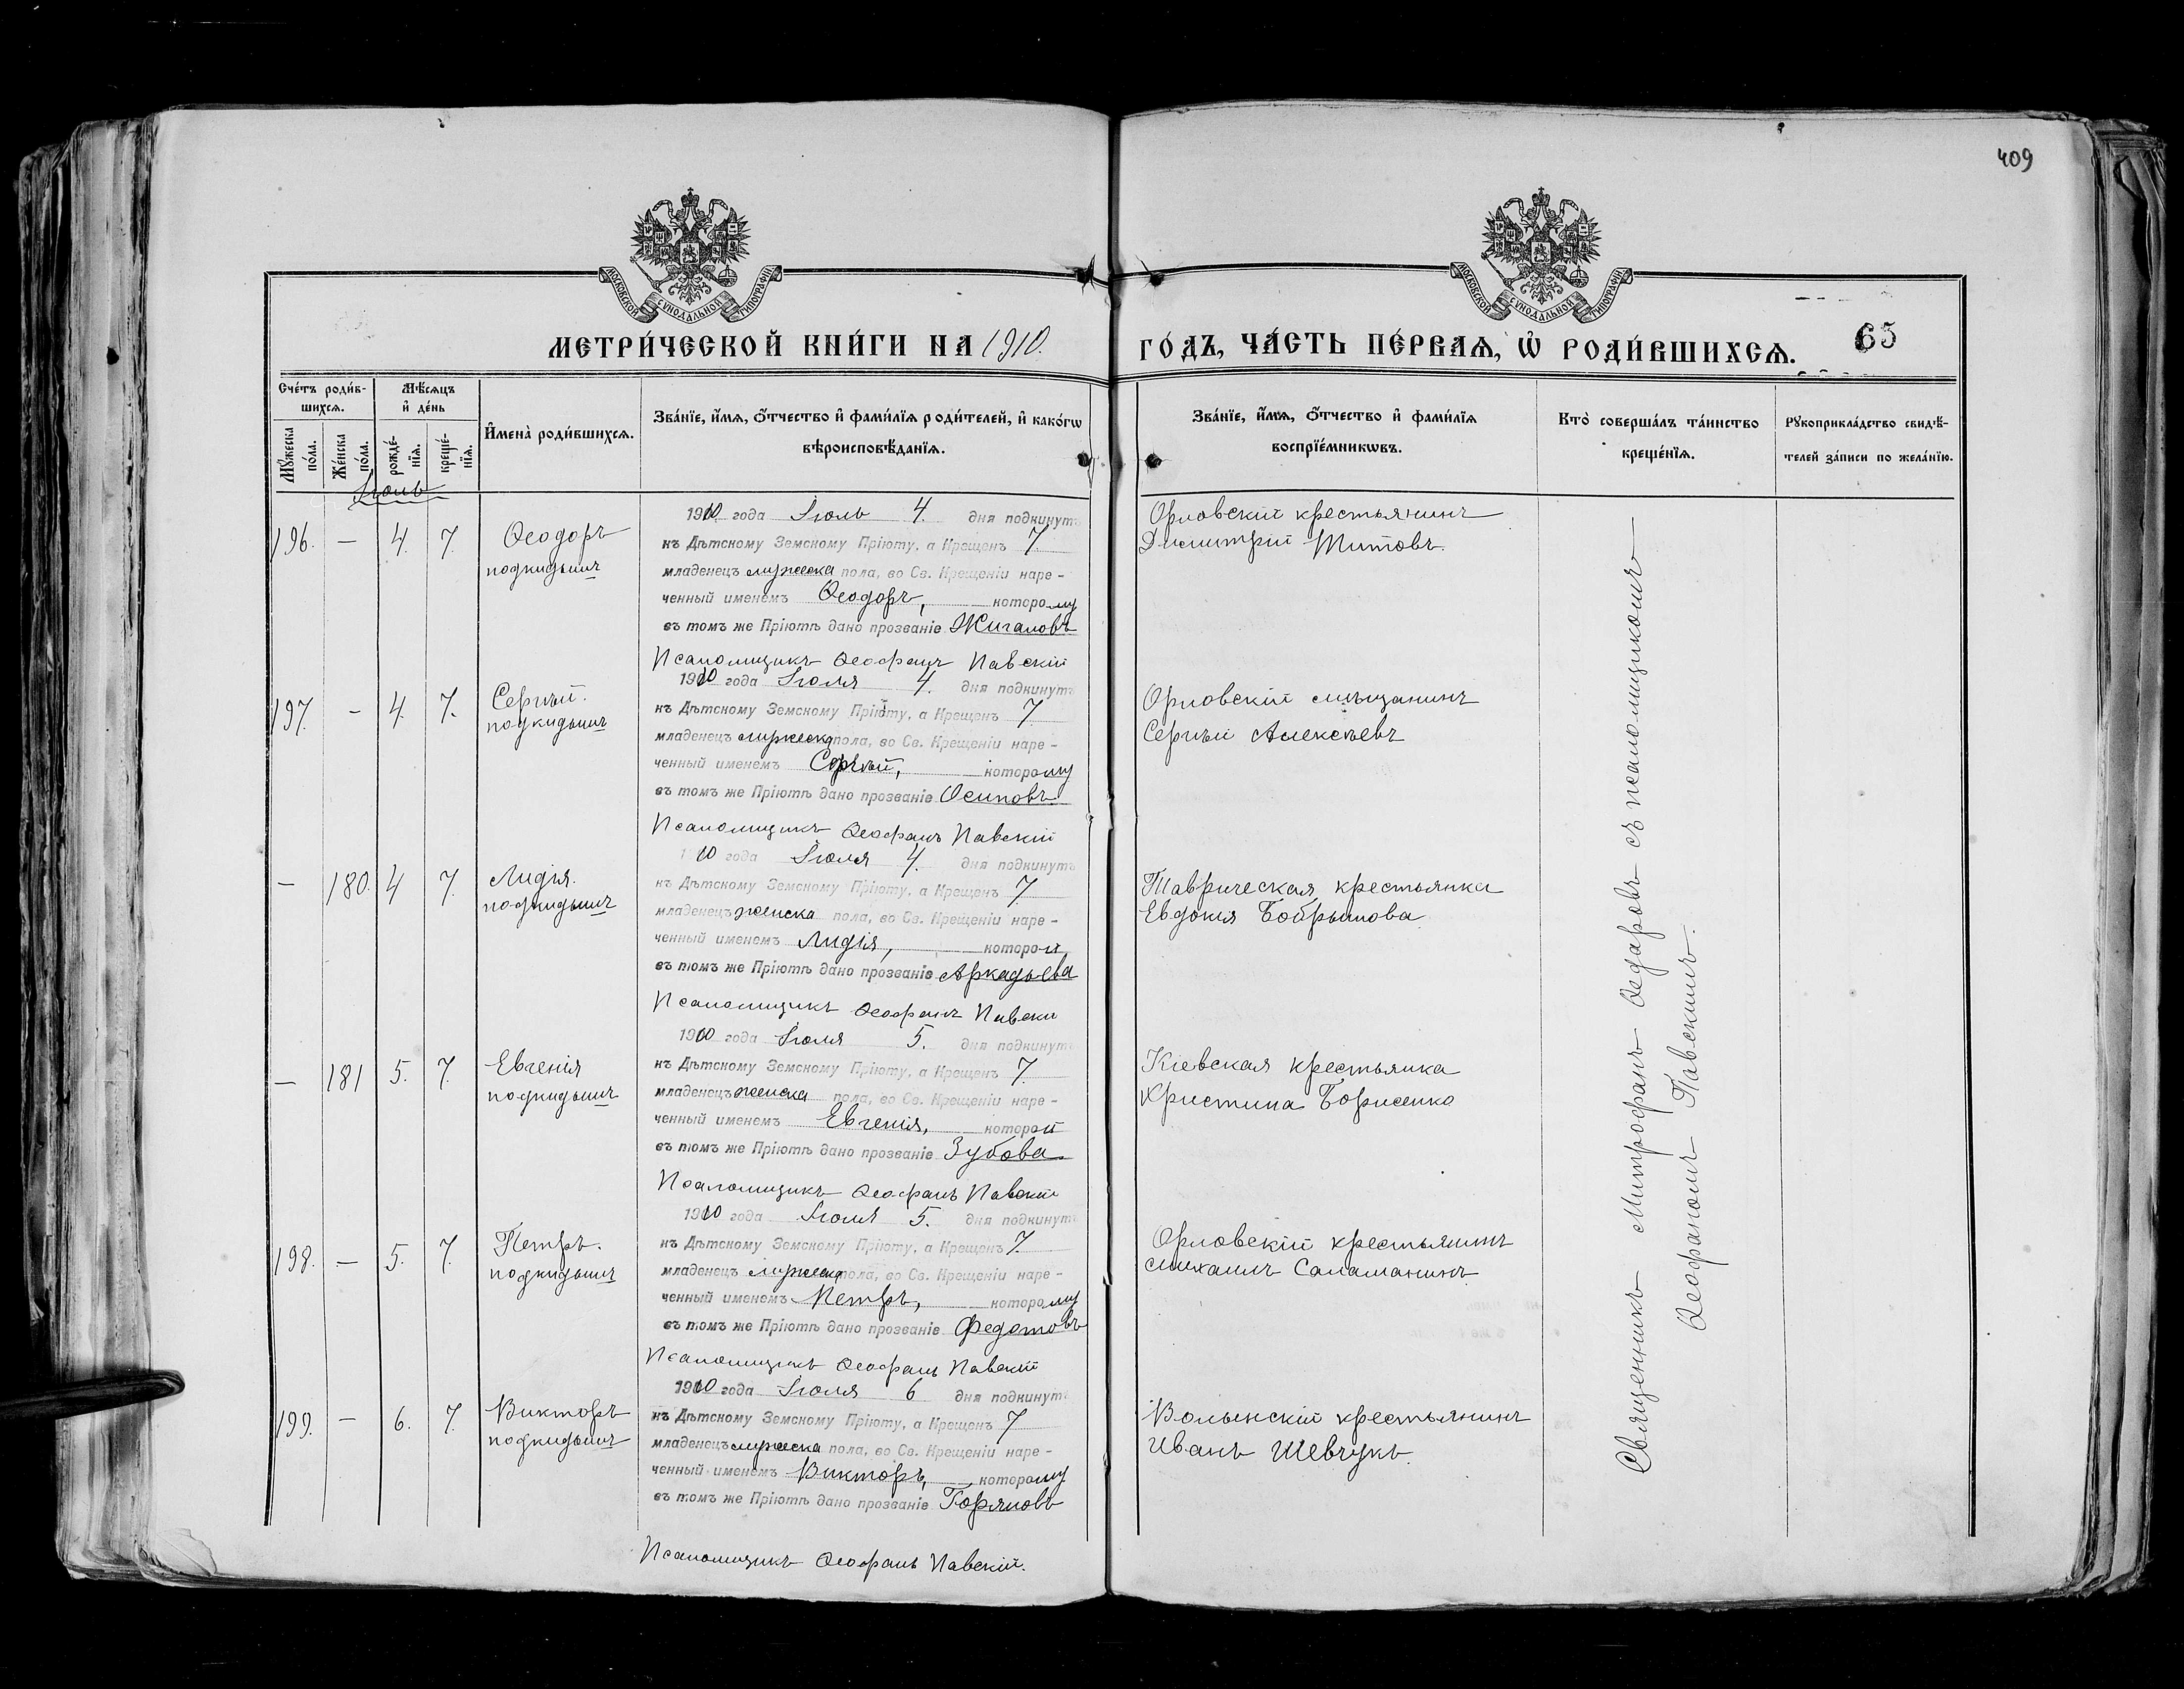 409
МОСКОВСКОЙ СѴНОДАЛЬНОЙ ТИПОГРАФІИ
МОСКОВСКОЙ СѴНОДАЛЬНОЙ ТИПОГРАФІИ
МЕТРИ́ЧЕСКОЙ КНИ́ГИ НА 1910. ГО́ДЪ, ЧА́СТЬ ПЕ́РВАѦ, Ѡ҆ РОДИ́ВШИХСѦ. 65
Сче́тъ роди́в-
шихсѧ.
Мꙋ́жеска по́ла.
Же́нска по́ла.
Мѣ́сѧцъ
и҆ де́нь
рожде́-
нїѧ.
креще́-
нїѧ.
И҆мена̀ роди́вшихсѧ.
Зва́нїе, и҆́мѧ, ѻ҆́тчество и҆ фами́лїѧ роди́телей, и҆ како́гѡ
вѣроисповѣ́данїѧ.
Зва́нїе, и҆́мѧ, ѻ҆́тчество и҆ фами́лїѧ
воспрїе́мникѡвъ.
Кто̀ соверша́лъ та́инство
креще́нїѧ.
Рꙋкоприкла́дство свидѣ́-
телей за́писи по жела́нїю.
Іюль
196. — 4. 7. Ѳеодоръ
подкидышъ
1910 года Іюль 4. дня подкинутъ
къ Дѣтскому Земскому Пріюту, а Крещенъ 7.
младенецъ мужеска пола, во Св. Крещеніи наре-
ченный именемъ Ѳеодоръ, которому
въ томъ же Пріютѣ дано прозваніе Жигаловъ
Псаломщикъ Ѳеофанъ Павскій
Орловскій крестьянинъ
Димитрій Титовъ.
197. — 4. 7. Сергѣй.
подкидышъ
1910 года Іюля 4. дня подкинутъ
къ Дѣтскому Земскому Пріюту, а Крещенъ 7
младенецъ мужеска пола, во Св. Крещеніи наре-
ченный именемъ Сергѣй, которому
въ томъ же Пріютѣ дано прозваніе Осиповъ
Псаломщикъ Ѳеофанъ Павскій
Орловскій мѣщанинъ
Сергѣй Алексѣевъ
— 180. 4 7. Лидія.
подкидышъ
1910 года Іюля 4. дня подкинутъ
къ Дѣтскому Земскому Пріюту, а Крещенъ 7
младенецъ женска пола, во Св. Крещеніи наре-
ченный именемъ Лидія, которой
въ томъ же Пріютѣ дано прозваніе Аркадьева
Псаломщикъ Ѳеофанъ Павскій
Таврическая крестьянка
Евдокія Бобрышова
— 181 5. 7. Евгенія
подкидышъ
1910 года Іюля 5. дня подкинутъ
къ Дѣтскому Земскому Пріюту, а Крещенъ 7.
младенецъ женска пола, во Св. Крещеніи наре-
ченный именемъ Евгенія, которой
въ томъ же Пріютѣ дано прозваніе Зубова
Псаломщикъ Ѳеофанъ Павскій
Кіевская крестьянка
Христина Борисенко
198. — 5. 7. Петръ.
подкидышъ
1910 года Іюля 5. дня подкинутъ
къ Дѣтскому Земскому Пріюту, а Крещенъ 7.
младенецъ мужеска пола, во Св. Крещеніи наре-
ченный именемъ Петръ, которому
въ томъ же Пріютѣ дано прозваніе Федотовъ
Псаломщикъ Ѳеофанъ Павскій
Орловскій крестьянинъ
Михаилъ Саламанинъ
199. — 6. 7. Викторъ
подкидышъ
1910 года Іюля 6 дня подкинутъ
къ Дѣтскому Земскому Пріюту, а Крещенъ 7
младенецъ мужеска пола, во Св. Крещеніи наре-
ченный именемъ Викторъ, которому
въ томъ же Пріютѣ дано прозваніе Горяновъ
Псаломщикъ Ѳеофанъ Павскій.
Волынскій крестьянинъ
Иванъ Шевчукъ.
Священникъ Митрофанъ Ѳедоровъ съ псаломщикомъ
Ѳеофаномъ Павскимъ.